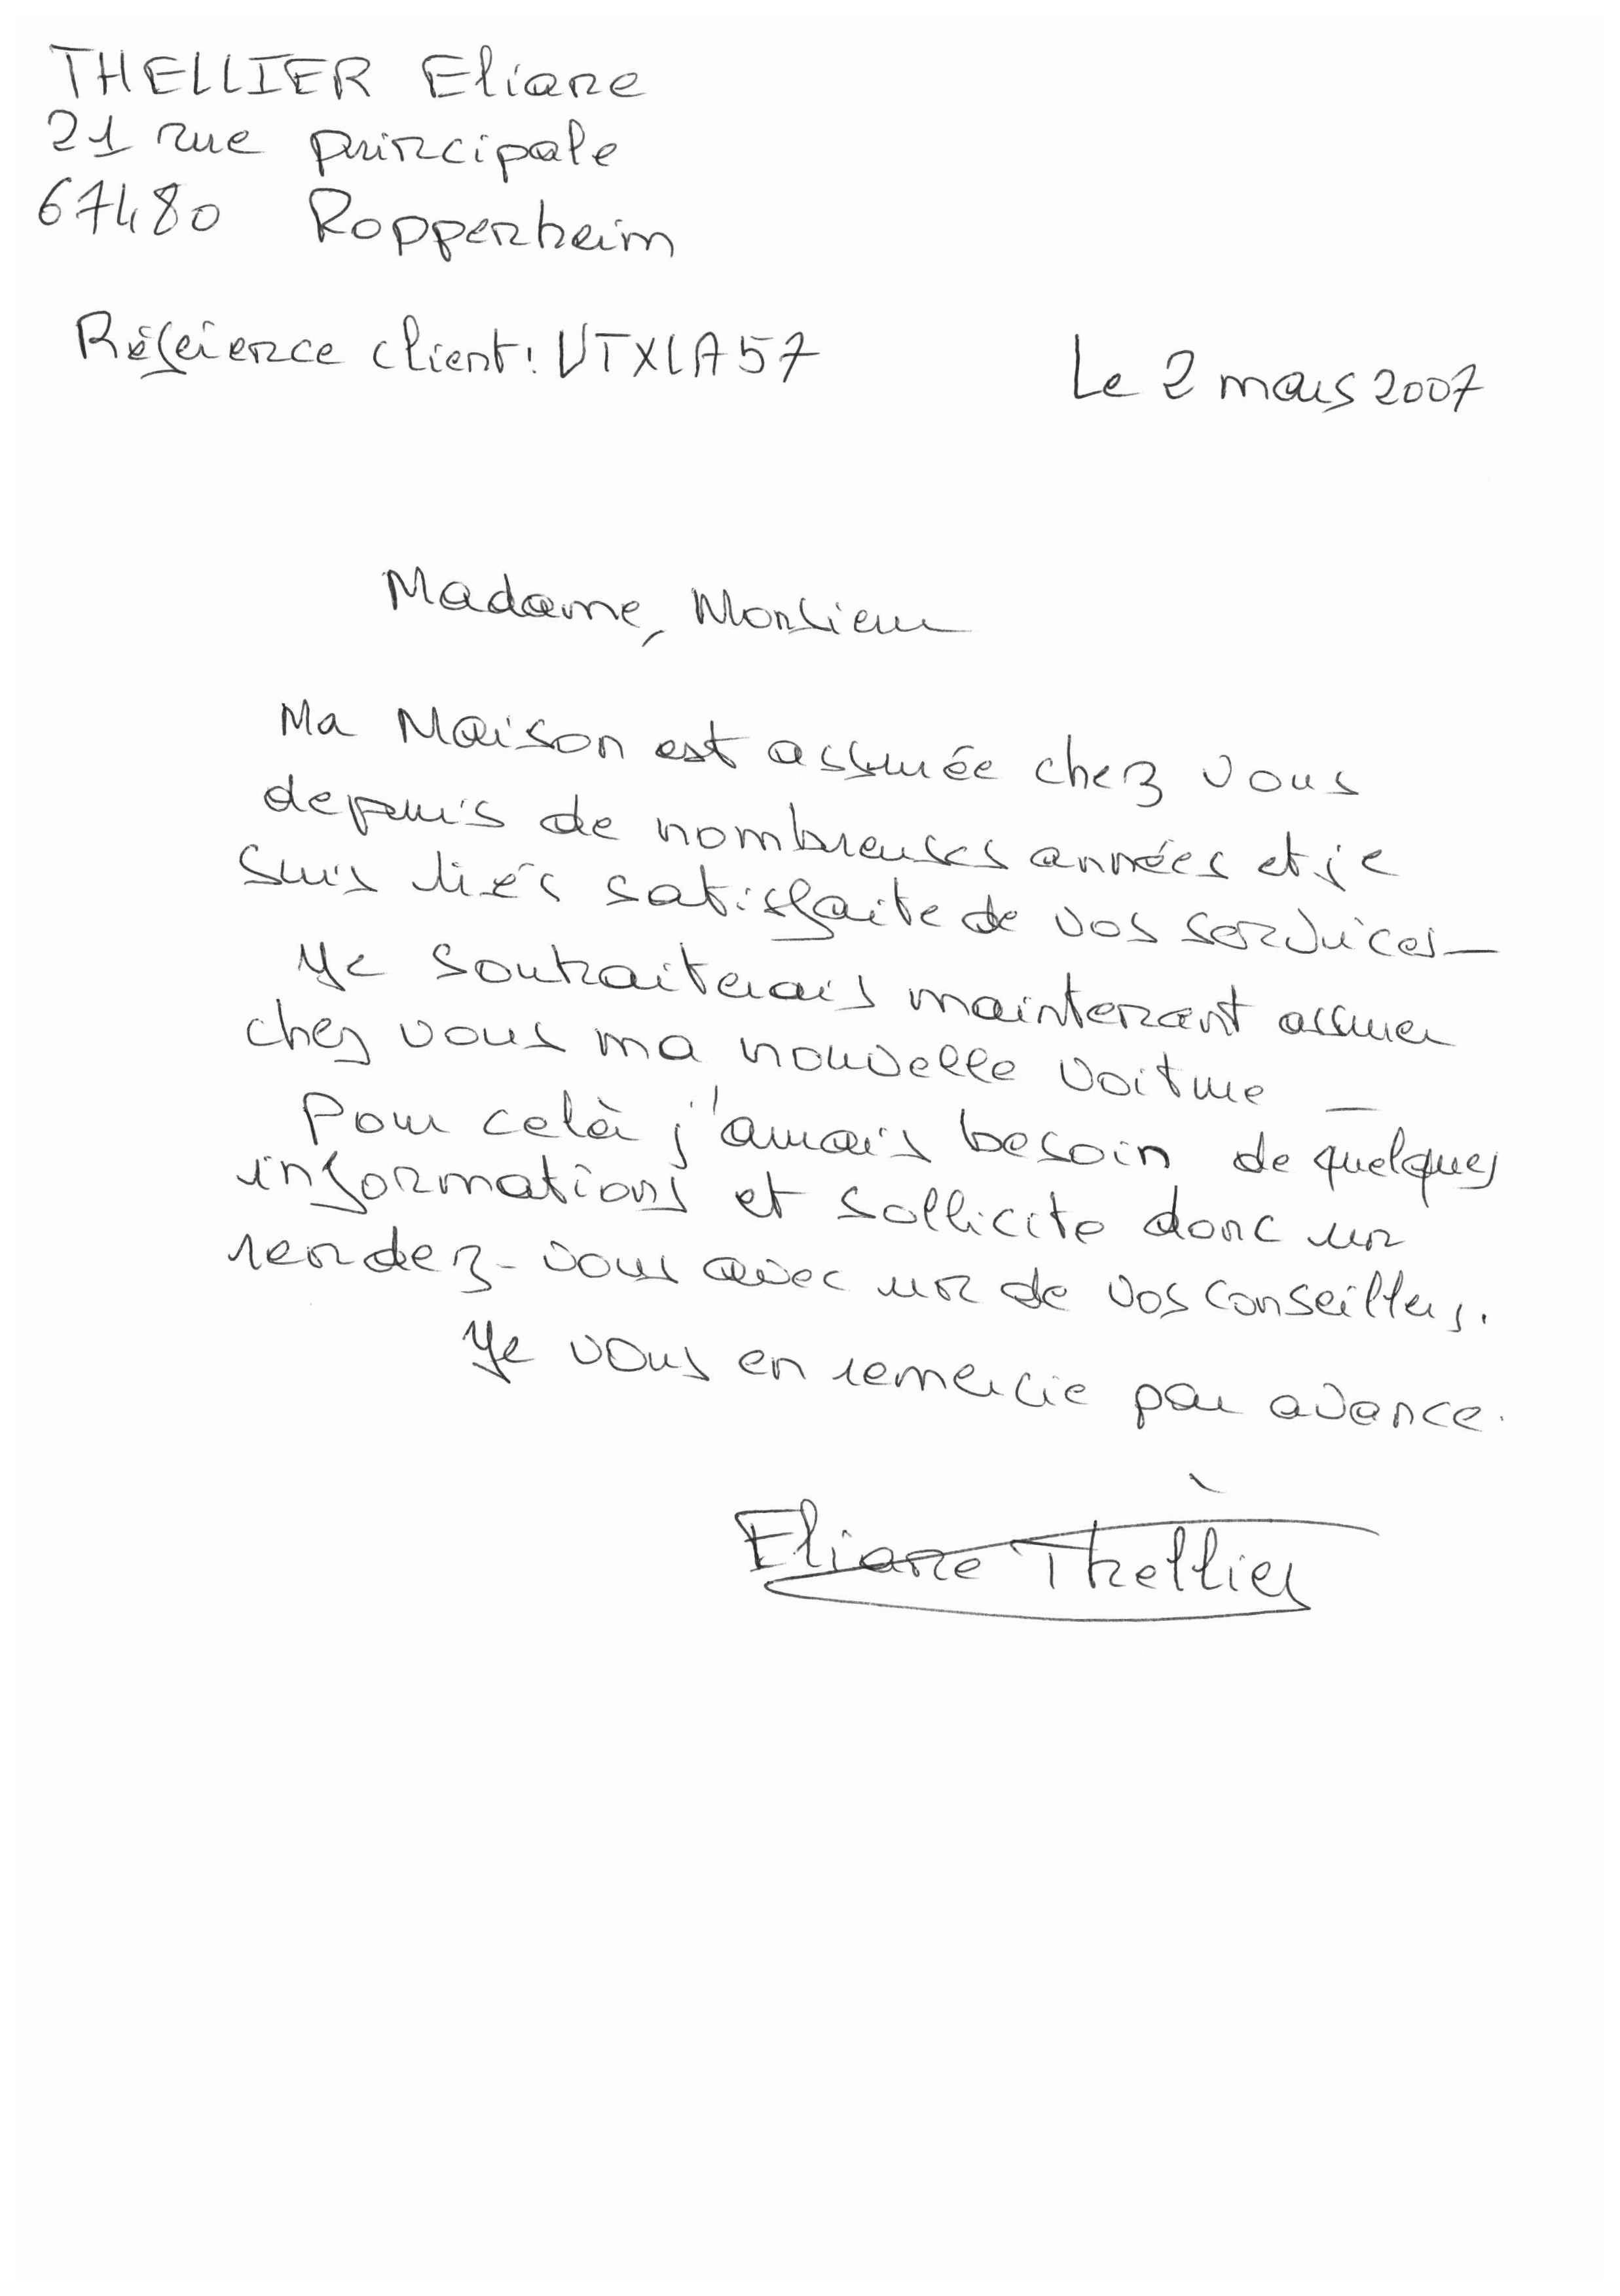 THELLIER Eliane
21 rue principale
67480 Roppenheim
Référence client: VTXLA57
Le 2 mars 2007
Madame, Monsieur
Ma Maison est assurée chez vous
depuis de nombreuses années et je
suis très satisfaite de vos services_
Je souhaiterais maintenant assurer
chez vous ma nouvelle voiture _
Pour celà j'aurais besoin de quelques
informations et sollicite donc un
rendez-vous avec un de vos conseillers.
Je vous en remercie par avance.
Eliane Thellier